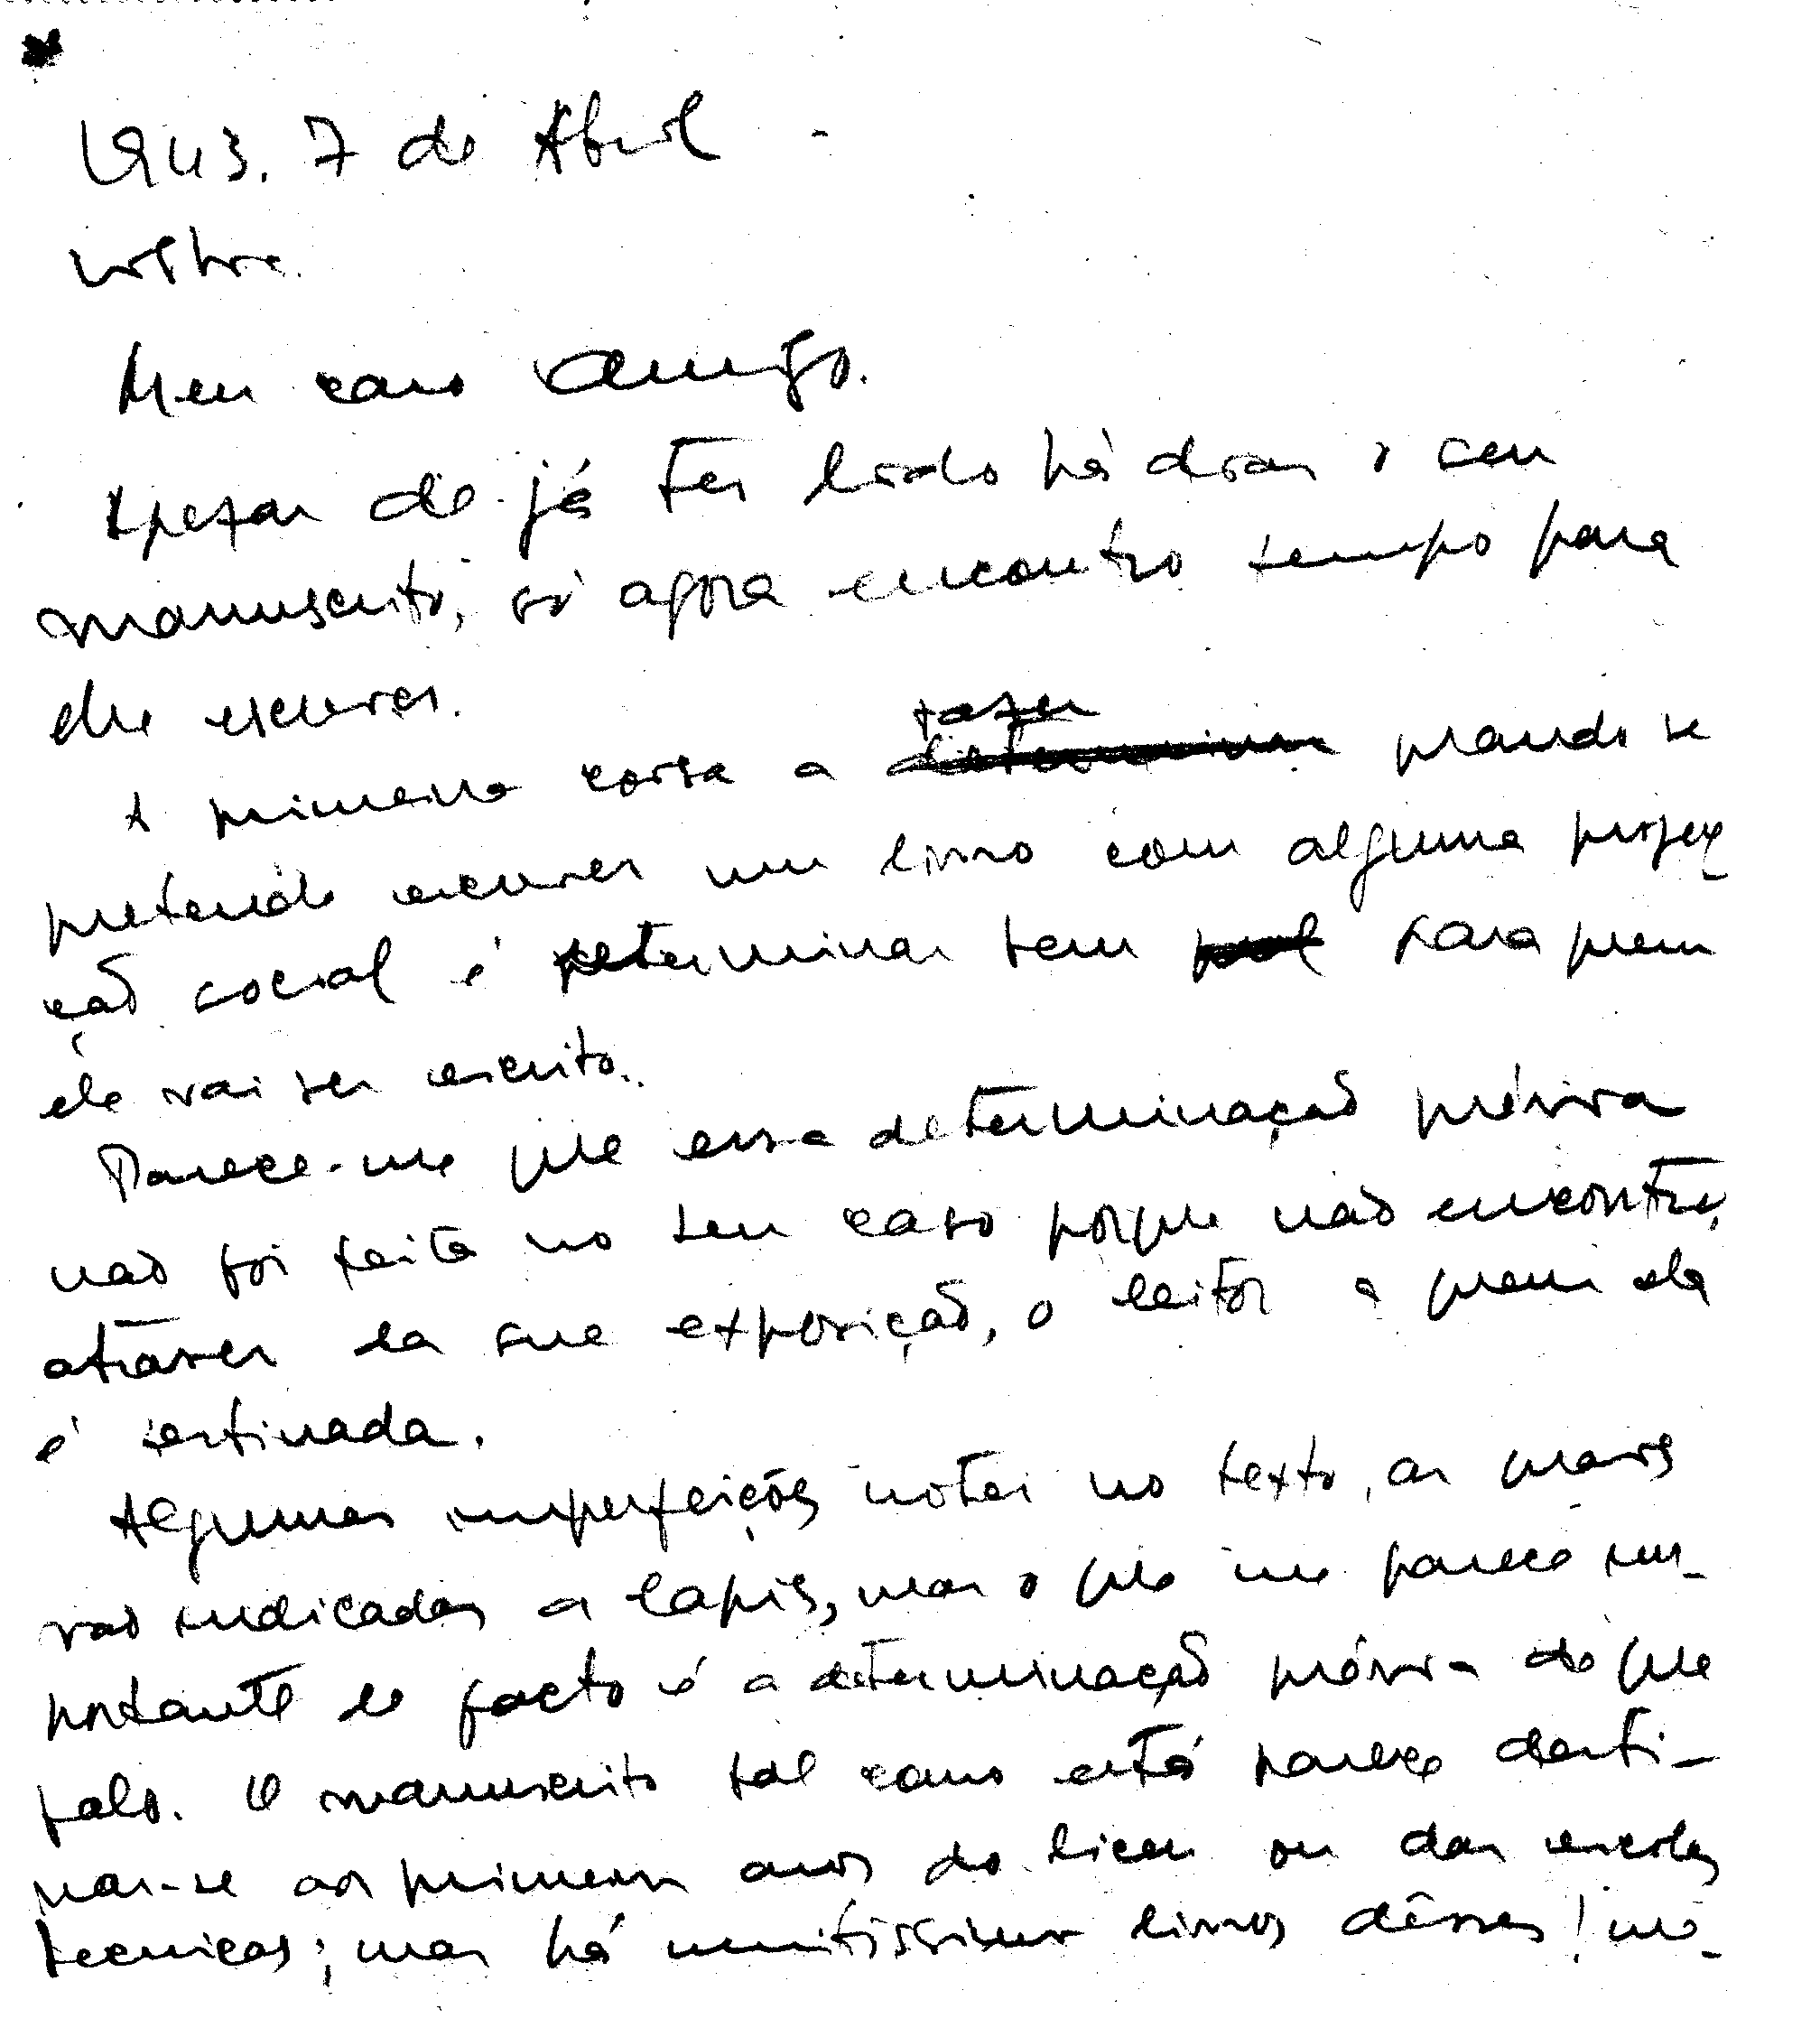 1943. 7 de Abril
Lisboa.
Meu caro Amigo.
Apezar de já ter lido há dias o seu
manuscrito, só agora encontro tempo para
lhe escrever.
A primeira coisa a fazer quando se
pretende escrever um livro com alguma projec
ção social é determinar bem para quem
ele vai ser escrito.
Parece-me que essa determinação prévia
não foi feita no seu caso porque não encontro,
atravez da sua exposição, o leitor a quem ela
é destinada.
Algumas imperfeições notei no texto, as quais
vão indicadas a lapis, mas o que me parece im-
portante de facto é a determinação prévia de que
falo. O manuscrito tal como está parece desti-
nar-se aos primeiros anos do liceu ou das escolas
tecnicas; mas há muitissimos livros dêsses! no-